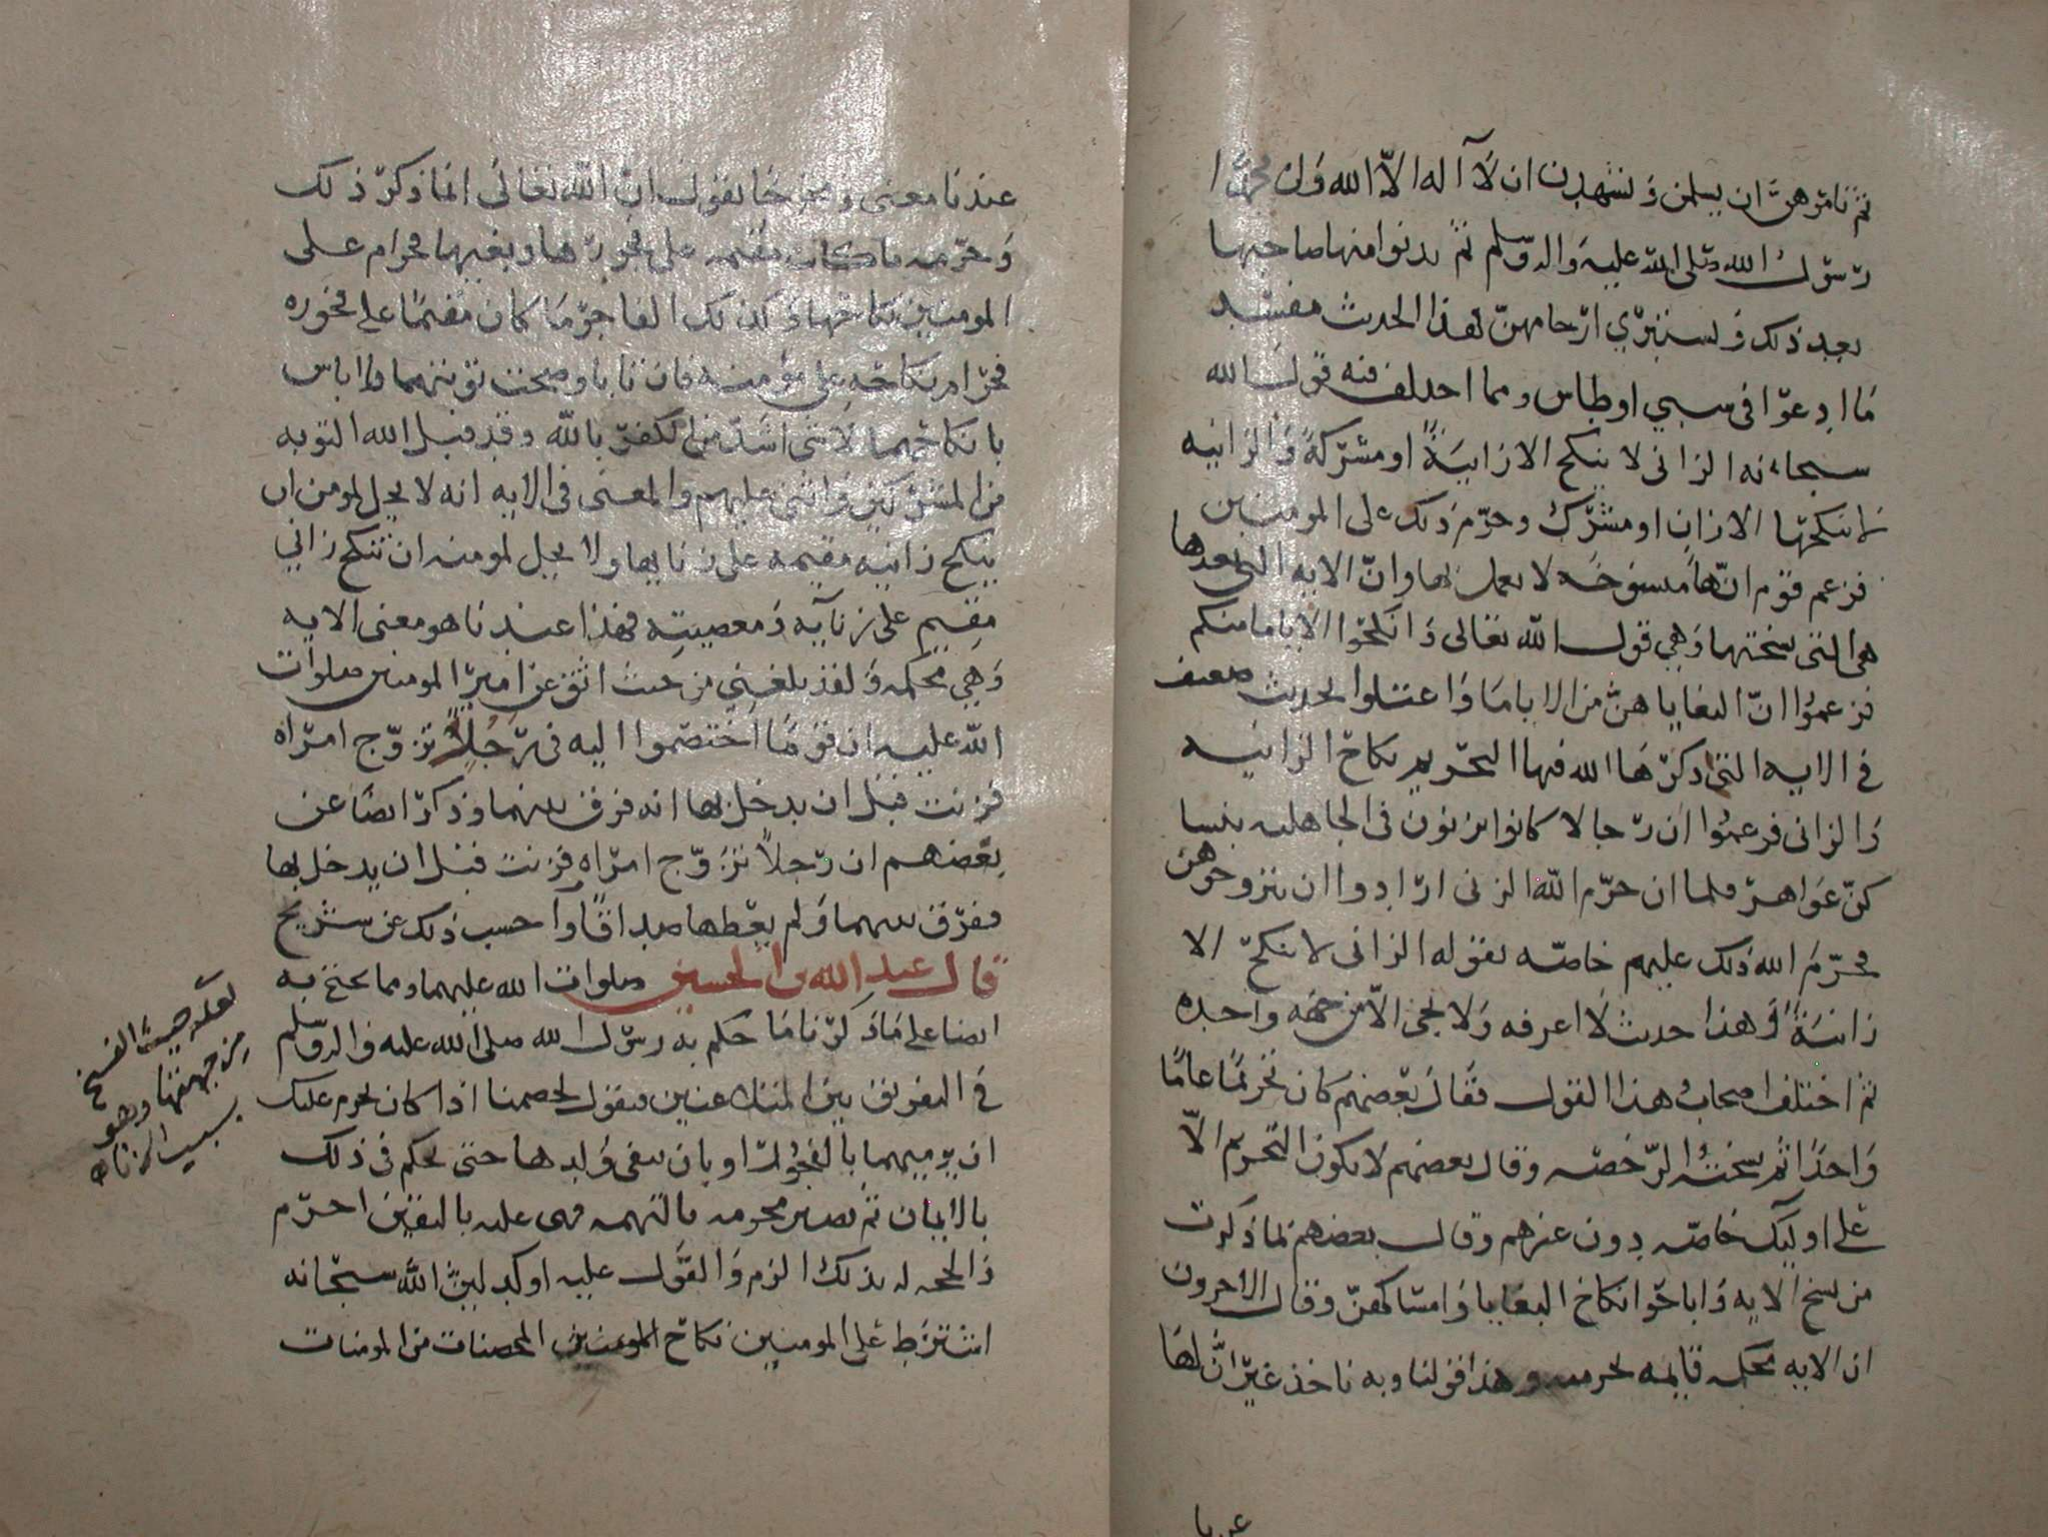 ثم نامرهن ان يسلمن وتشهدن ان لا اله الا الله وان محمدا
رسول الله صلى الله عليه واله وسلم ثم يدنوا منها صاحبها
بعد ذلك وتستبري ارحامهن فهذا الحديث مفسد
ما ادعوا في سبي اوطاس ومما اختلف فيه قول الله
سبحانه الزاني لا ينكح الا زانية او مشركة والزانيه
لا ينكحها الا زان او مشرك وحرم ذلك على المومنين
فزعم قوم انها منسوخه لا يعمل بها وان الايه التي بعدها
هي التي نسختها وهي قول الله تعالى وانكحوا الاياما منكم
فزعموا ان البغايا هن من الاياما واعتلوا بحديث ضعيف
في الايه التي ذكر الله فيها التحريم نكاح الزانيه
والزاني فزعموا ان رجالا كانوا يزنون في الجاهليه بنسا
كن عواهر فلما ان حرم الله الزنى ارادوا ان يتزوجوهن
فحرم الله ذلك عليهم خاصه بقوله الزاني لا ينكح الا
زانية وهذا حديث لا اعرفه ولا يجي الا من جهه واحده
ثم اختلف اصحاب هذا القول فقال بعضهم كان تحريما عاما
واحدا ثم نسخته الرخصه وقال بعضهم لا يكون التحريم الا
على اوليك خاصه دون غيرهم وقال بعضهم بما ذكرت
من نسخ الايه واباحوا نكاح البغايا وامساكهن وقال الاخرون
ان الايه محكمه قايمه لحرمه وهذا قولنا وبه ناخذ غير ان لها
عندنا معنى ومخرجا نقول ان الله تعالى انما ذكر ذلك
وحرمه ما كانت مقيمه على فجورها وبغيها فحرام على
المومنين نكاحها وكذلك الفاجر ما كان مقيما على فجوره
فحرام نكاحه على مؤمنه فان تابا وصحت توبتهما فلا باس
بانكاحهما لا شي اشد من الكفر بالله وقد قبل الله التوبه
من المشركين واثنى عليهم والمعنى في الايه انه لا يحل لمومن ان
ينكح زانيه مقيمه على زنايها ولا يحل لمومنه ان تنكح زاني
مقيم على زنآيه ومعصيته فهذا عندنا هو معنى الايه
وهي محكمه ولقد بلغني من حيث اثق عن امير المومنين صلوات
الله عليه ان قوما اختصموا اليه في رجل تزوج امراه
فزنت قبل ان يدخل بها انه فرق بينهما وذكر ايضا عن
بعضهم ان رجلا تزوج امراه فزنت قبل ان يدخل بها
ففرق بينهما ولم يعطها صداقا واحسب ذلك عن شريح
قال عبد الله بن الحسين صلوات الله عليهما ومما يحتج به
ايضا على ما ذكرنا ما حكم به رسول الله صلى الله عليه واله وسلم
في التفريق بين المتلاعنين فيقول لخصمنا اذا كان يحرم عليك
ان يرميهما بالفجور او بان ينفي ولدها حتى يحكم في ذلك
بالايمان ثم تصير محرمه بالتهمه فهي عليه باليقين احرم
والحجه له بذلك الزم والقول عليه اوكد ليت الله سبحانه
اشترط على المومنين نكاح المومنين المحصنات من المومنات
لعله حيث الفسخ
من جهتها وهو
بسبب الزنا